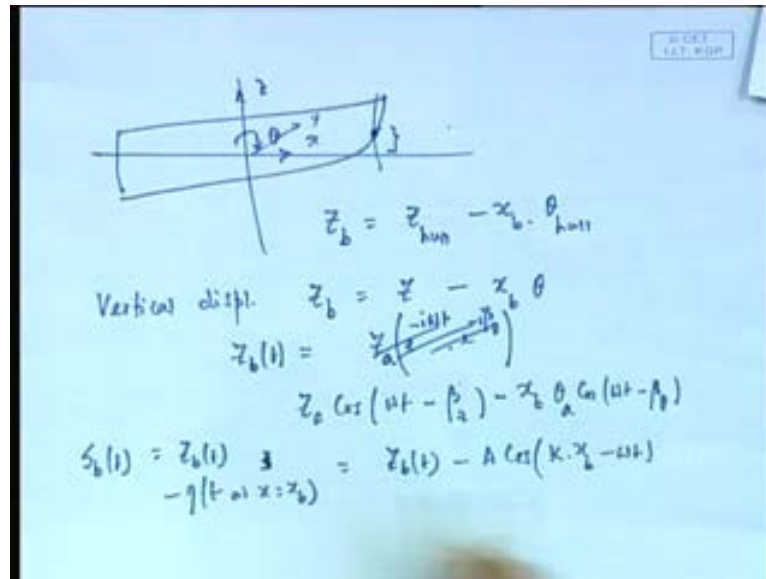 © CET
I.I.T. KGP
z
θ y
x
z_b = z_hull - x_b . θ_hull
Vertical displ. z_b = z - x_b θ
z_b(t) = z_a(
z_a Cos(ωt - β_z) - x_b θ_a Cos(ωt - β_θ)
S_b(t) = z_b(t) = z_b(t) - A Cos(k.x_b - ωt)
- η(t at x = x_b)